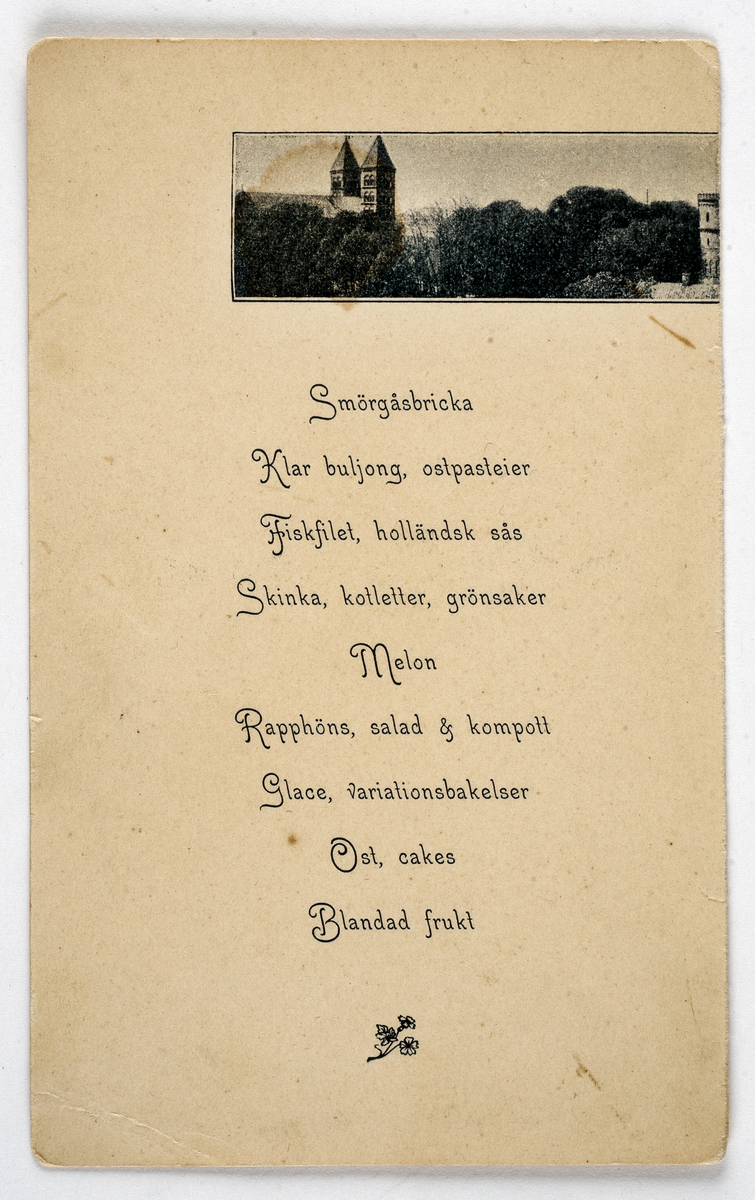 Smörgåsbricka
Klar buljong, ostpasteier
Fiskfilet, holländsk sås
Skinka, kotletter, grönsaker
Melon
Rapphöns, salad & kompott
Glace, variationsbakelser
Ost, cakes
Blandad frukt